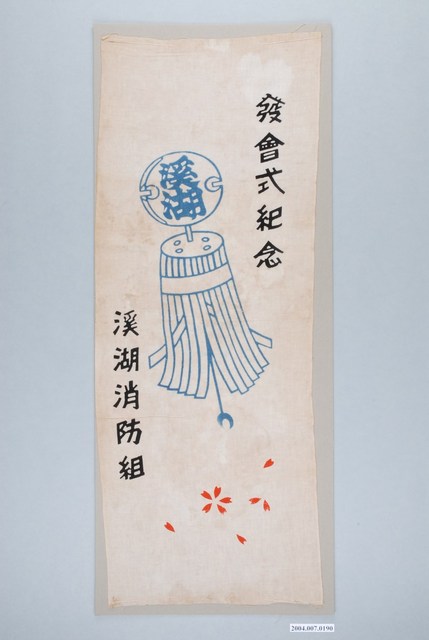 發會式紀念
溪湖
溪湖消防組
2004.007.0190